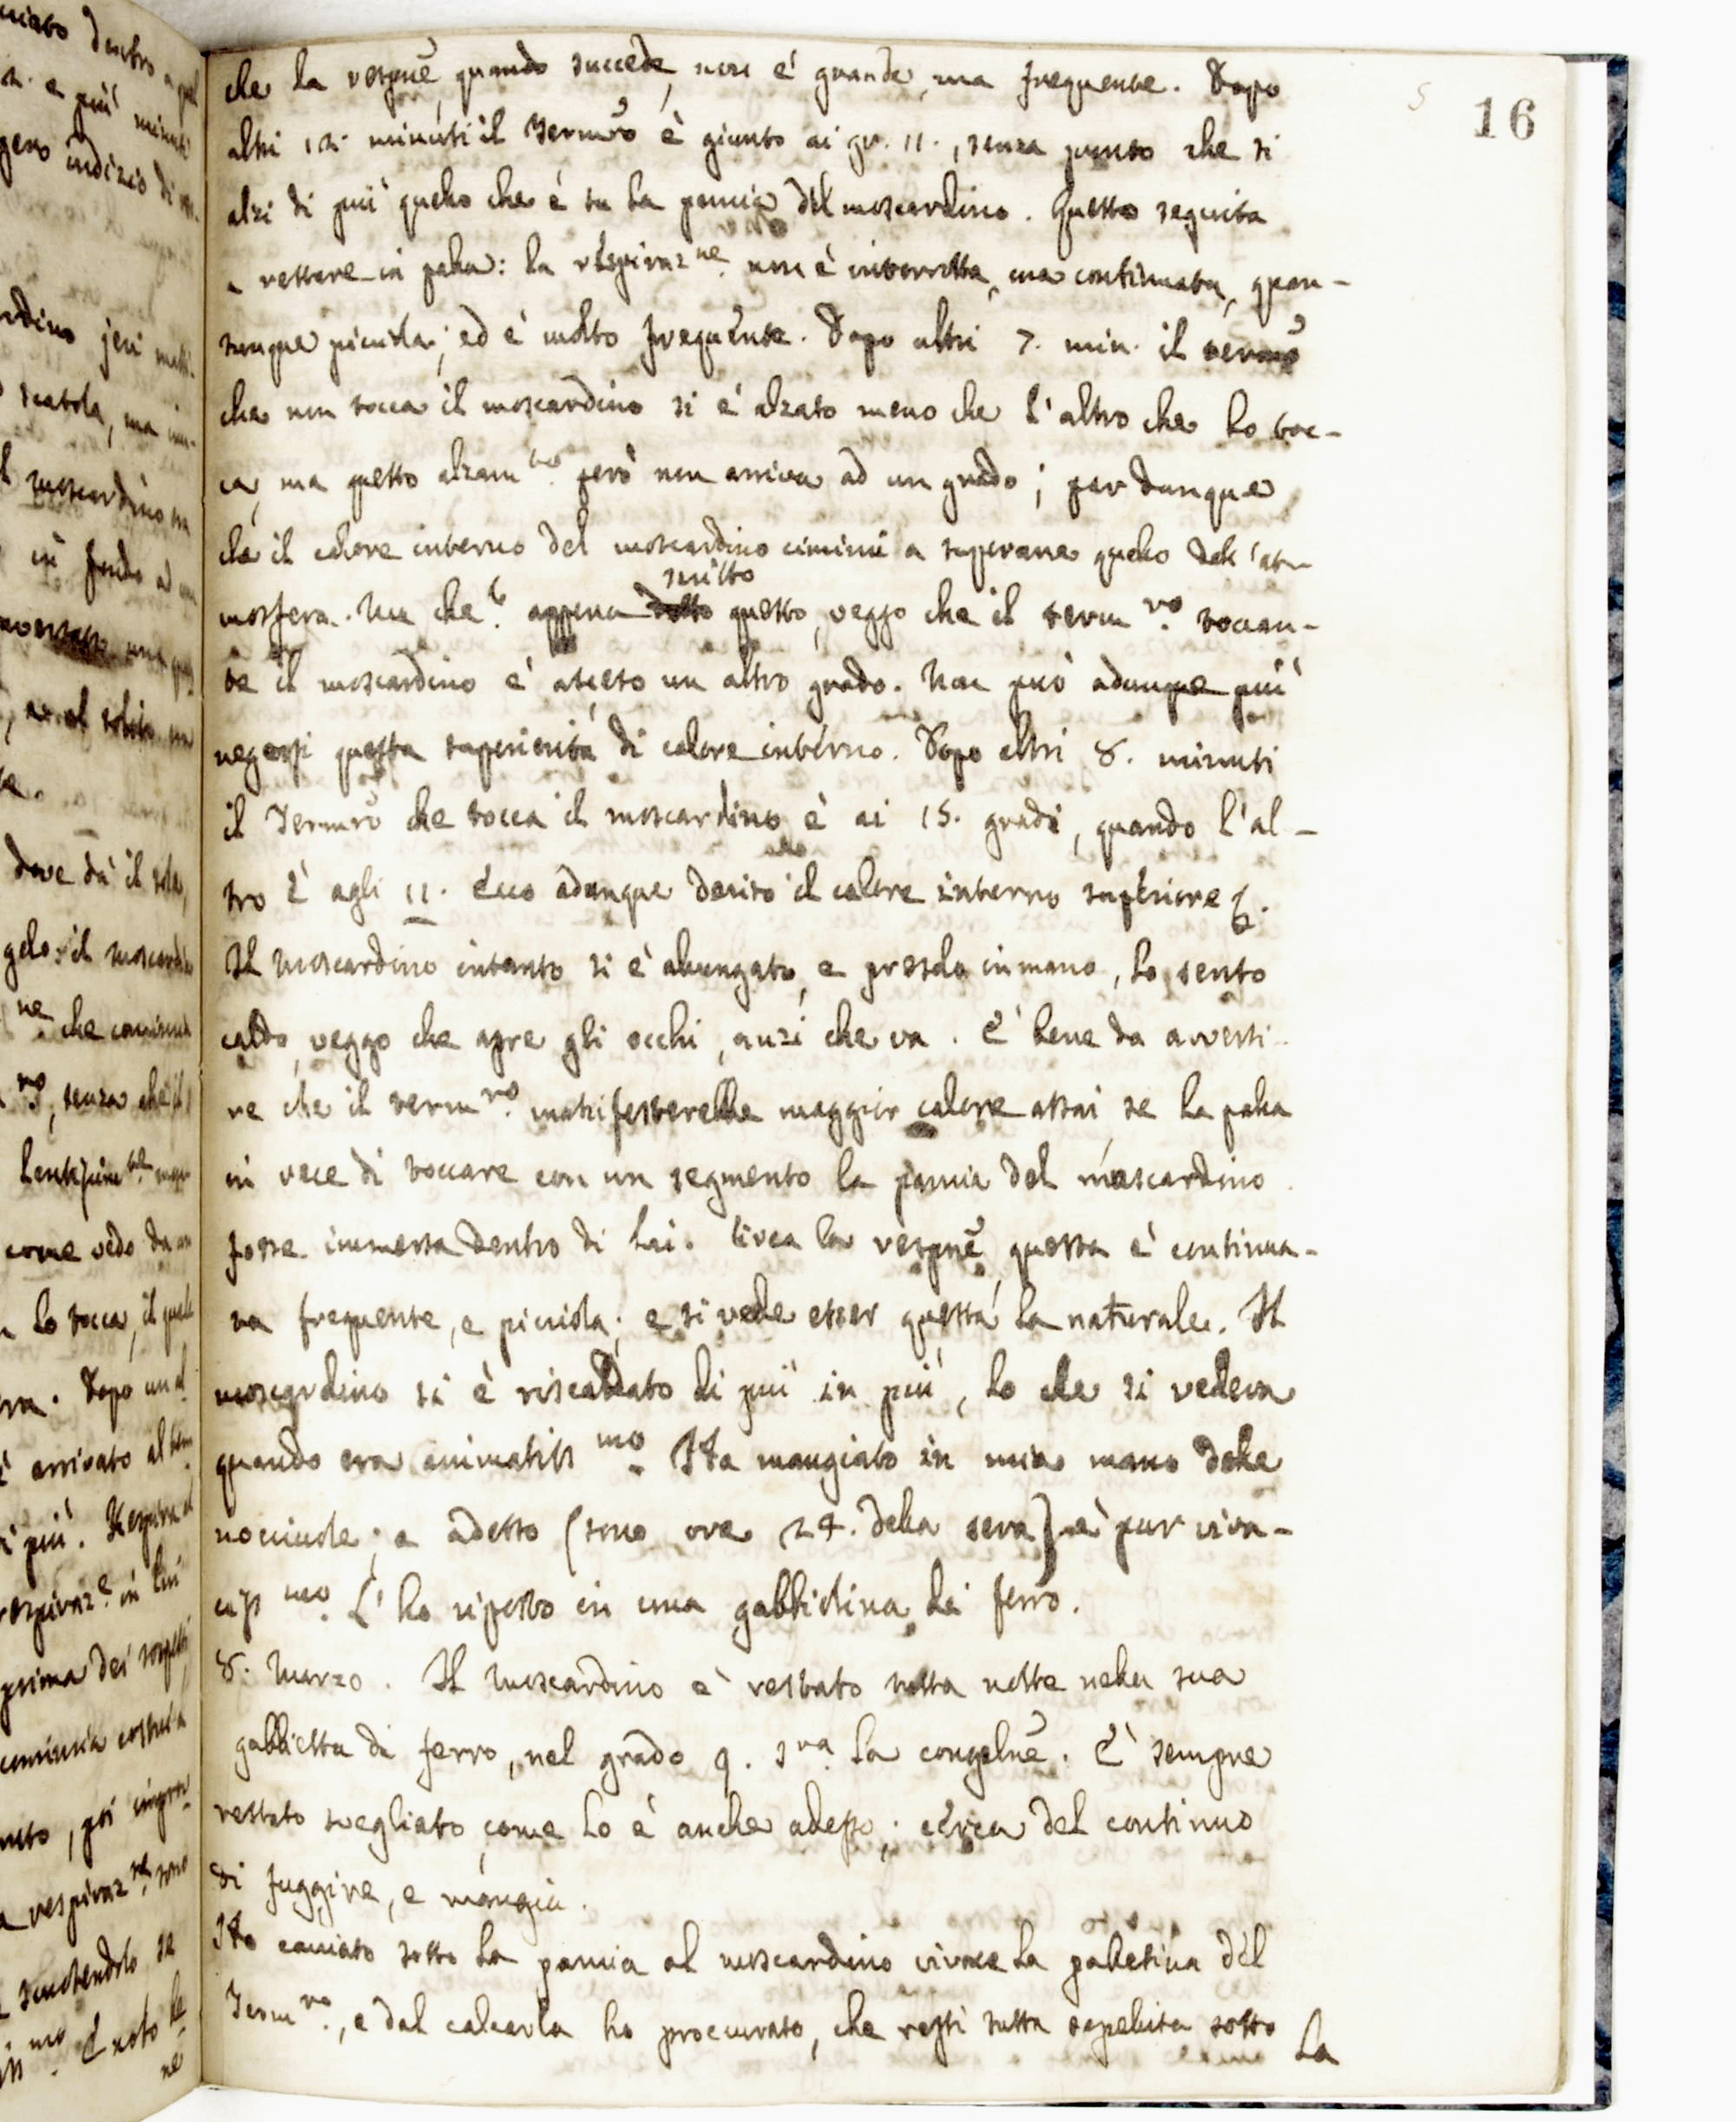 16
che la respne quando succede, non è grande, ma frequente. Dopo
altri 12. minuti il Termro è giunto ai gr. 11., senza punto che si
alzi di più quello che è su la pancia del moscardino. Questo seguita
a restare in palla: la respirazne. non è interrotta, ma continuata, quan-
tunque picciola; ed è molto frequente. Dopo altri 7. min. il termro
che non tocca il moscardino si è alzato meno che l'altro che lo toc-
ca, ma questo alzamto. però non arriva ad un grado; par dunque
che il calore interno del moscardino cominci a superare quello dell'at-
mosfera. Ma che? appena scritto questo, veggo che il termro. toccan-
te il moscardino è asceso un altro grado. Non può adunque più
negarsi questa superiorità di calore interno. Dopo altri 8. minuti
il Termro che tocca il moscardino è ai 15. gradi, quando l'al-
tro è agli 11. Ecco adunque deciso il calore interno superiore &.
Il Moscardino intanto si è allungato, e preso in mano, lo sento
caldo, veggo che apre gli occhi, anzi che va. È bene da avverti-
re che il termro. manifesterebbe maggior calore assai se la palla
in vece di toccare con un segmento la pancia del moscardino
fosse immersa dentro di lui. Circa la respne, questa è continua-
ta frequente, e picciola; e si vede esser questa la naturale. Il
moscardino si è riscaldato di più in più, lo che si vedeva
quando era animatissmo. Ha mangiato in mia mano delle
nocciuole; e adesso (sono ore 24. della sera) è pur viva-
cissmo. L'ho riposto in una gabbiolina di ferro.
8. Marzo. Il Moscardino è restato tutta notte nella sua
gabbietta di ferro, nel grado 9. sra. la congelne. È sempre
restato svegliato, come lo è anche adesso; cerca del continuo
di fuggire, e mangia.
Ho cacciato sotto la pancia al moscardino vivace la palletina del
Termro., e dal calcarla ho procurato, che resti tutta sepellita sotto
la